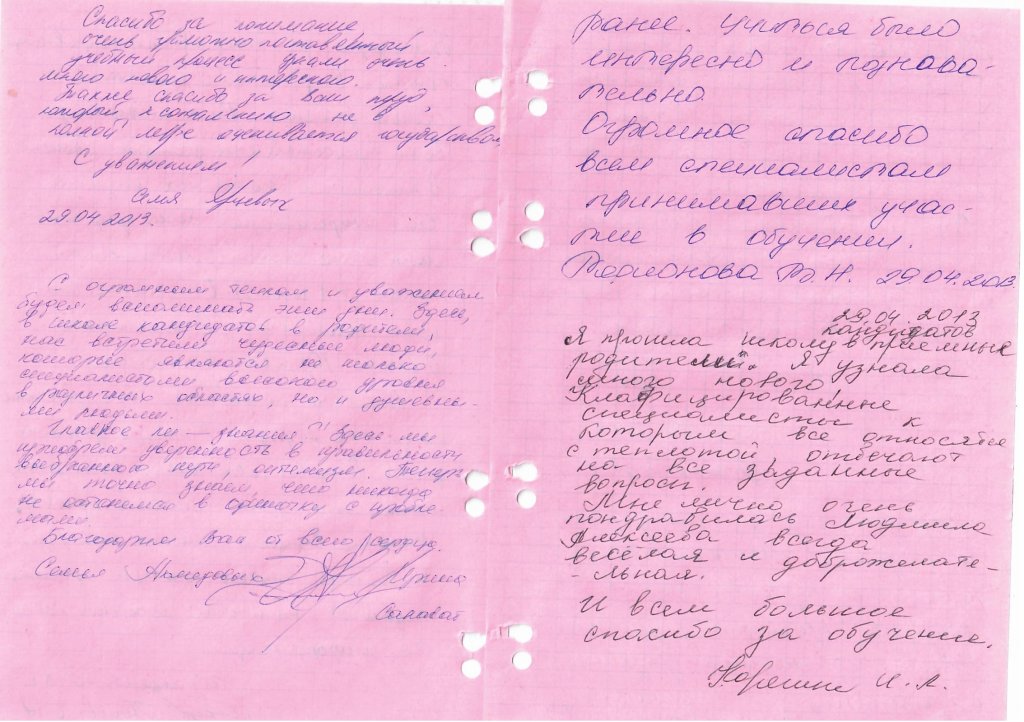 Спасибо за понимание
очень грамотно поставленный
учебный процесс узнали очень
много нового и интересного.
Также спасибо за ваш труд,
который, к сожалению не в
полной мере оценивается государством.
С уважением!
Семья
29.04.2013.
С огромным теплом и уважением
будем вспоминать эти дни. Здесь,
в школе кандидатов в родители,
нас встретили чудесные люди,
которые являются не только
специалистами высокого уровня
в различных областях, но и душевны-
ми людьми.
Главное ли – знания? Здесь мы
приобрели уверенность в правильности
выбранного пути, оптимизм. Теперь
мы точно знаем, что никогда
не останемся в одиночку с пробле
мами.
Благодарим Вас от всего сердца.
Семья Ахмедовых Ирина
Салават
ранее. Учиться было
интересно и познава-
тельно.
Огромное спасибо
всем специалистам
принимавших учас-
тие в обучении.
Родионова В.Н. 29.04.2013
29.04.2013
кандидатов
Я прошла школу в приёмных
родители". Я узнала
много нового
Клафицированные
специалисты к
которым все относятся
с теплотой, отвечают
на все заданные
вопросы.
Мне лично очень
пондравилась Людмила
Алексеева всегда
весёлая и доброжелате-
-льная.
И всем большое
спасибо за обучение.
И.А.